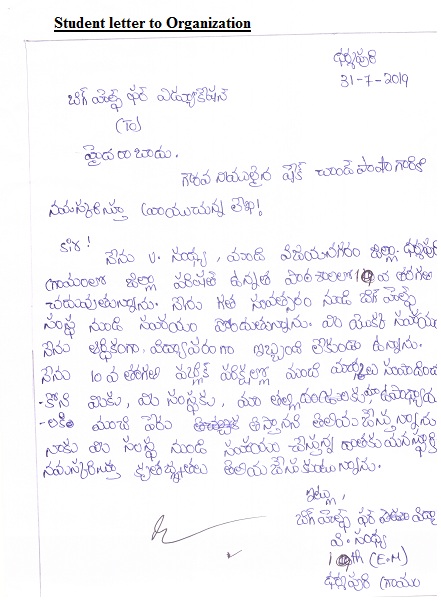 Student letter to Organization
ధర్మపురి
31-7-2019
బిగ్ హెల్ప్ ఫర్ ఎడ్యుకేషన్
(To)
హైదరాబాదు.
గౌరవనీయులైన షేక్ చాంద్ పాషా గారికి
నమస్కరిస్తూ వ్రాయునన్న లేఖ!
సార్!
నేను U. సంధ్య, మాది విజయనగరం జిల్లా ధర్మపురి
గ్రామంలో జిల్లా పరిషత్ ఉన్నత పాఠశాలలో 10వ తరగతి
చదువుతున్నాను. నేను గత సంవత్సరం నుండి బిగ్ హెల్ప్
సంస్థ నుండి సహాయం పొందుతున్నాను. మీ యొక్క సహాయం
నేను ఆర్థికంగా, విద్యాపరంగా ఇబ్బంది లేకుండా ఉన్నాను.
నేను 10వ తరగతి పబ్లిక్ పరీక్షల్లో మంచి మార్కులు
మీకు, మీ సంస్థకు, మా తల్లిదండ్రులకు
మంచి పేరు తెస్తానని తెలియచేస్తున్నాను
నాకు మీ సంస్థ నుండి సహాయం చేస్తున్న
నమస్కరిస్తూ కృతజ్ఞతలు తెలియచేసుకుంటున్నాను.
ఇట్లు,
బిగ్ హెల్ప్ ఫర్
సంధ్య
10th (E.M)
ధర్మపురి గ్రామం